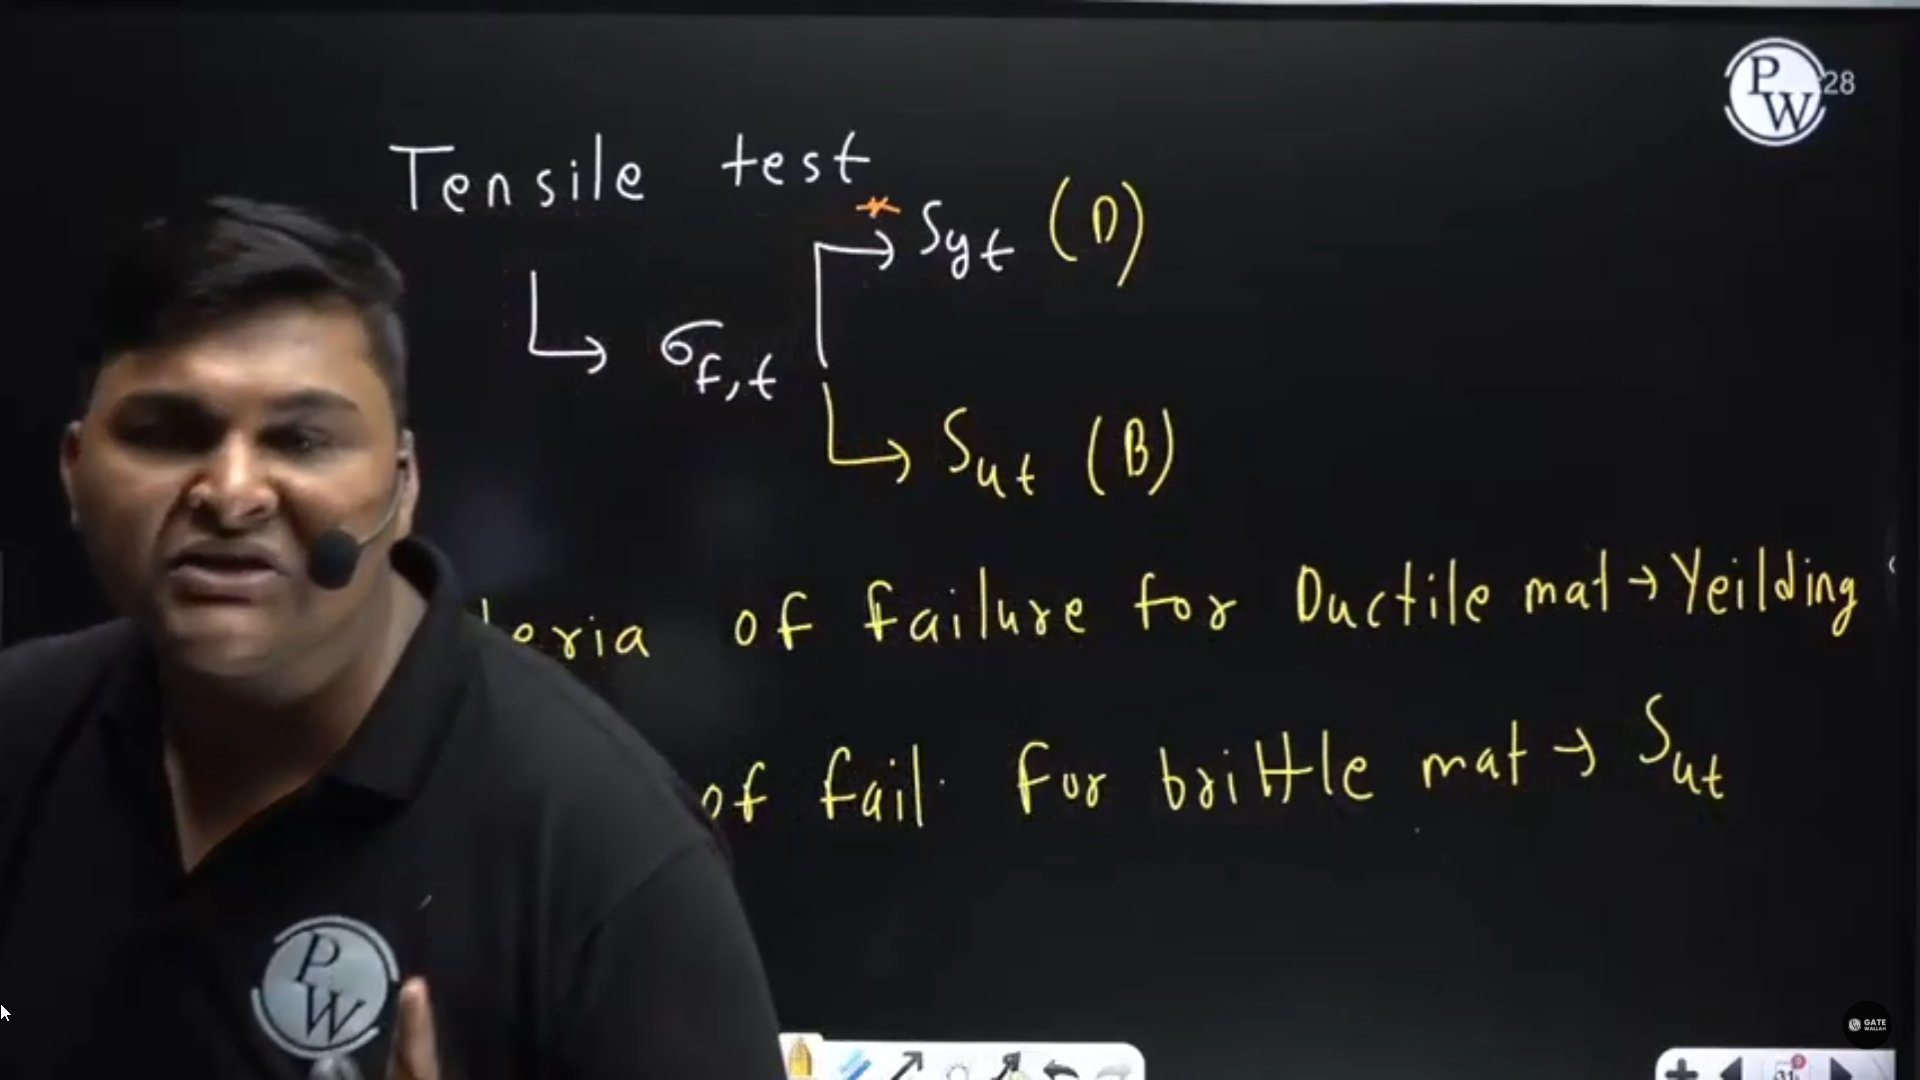 PW 28
Tensile test
Syt (D)
σF,t
Sut (B)
of failure for Ductile mat → Yeilding
of fail. For brittle mat → Sut
PW
GATE
WALLAH